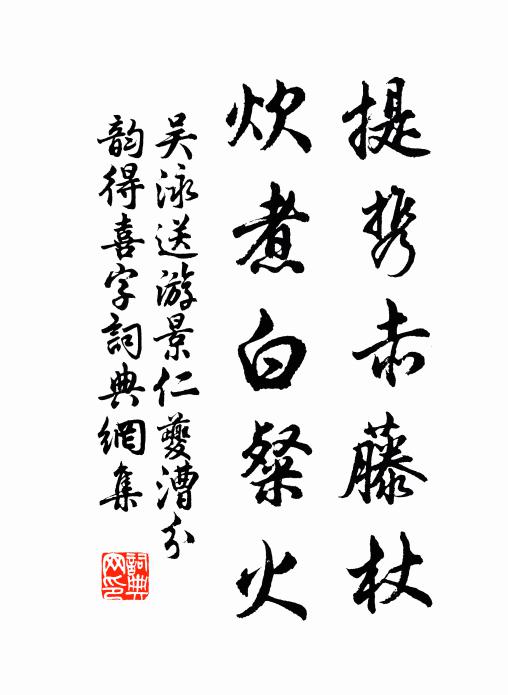 提携赤藤杖
炊煮白粲火
吴泳送游景仁夔漕分
韵得喜字詞典網集
詞典網印